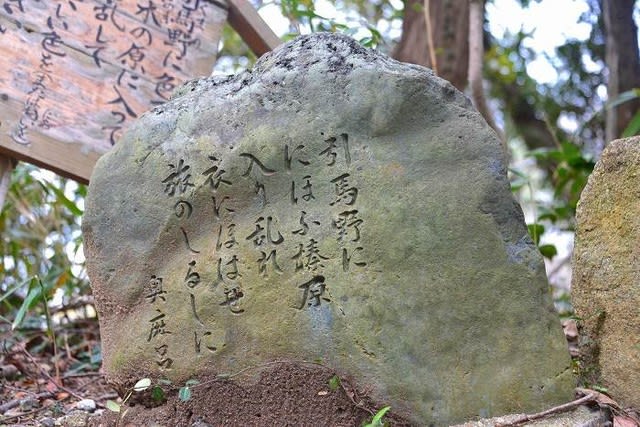 引馬野に
にほふ榛原
入り乱れ
衣にほはせ
旅のしるしに
奥麻呂
野に色
木の原に入って
乱して